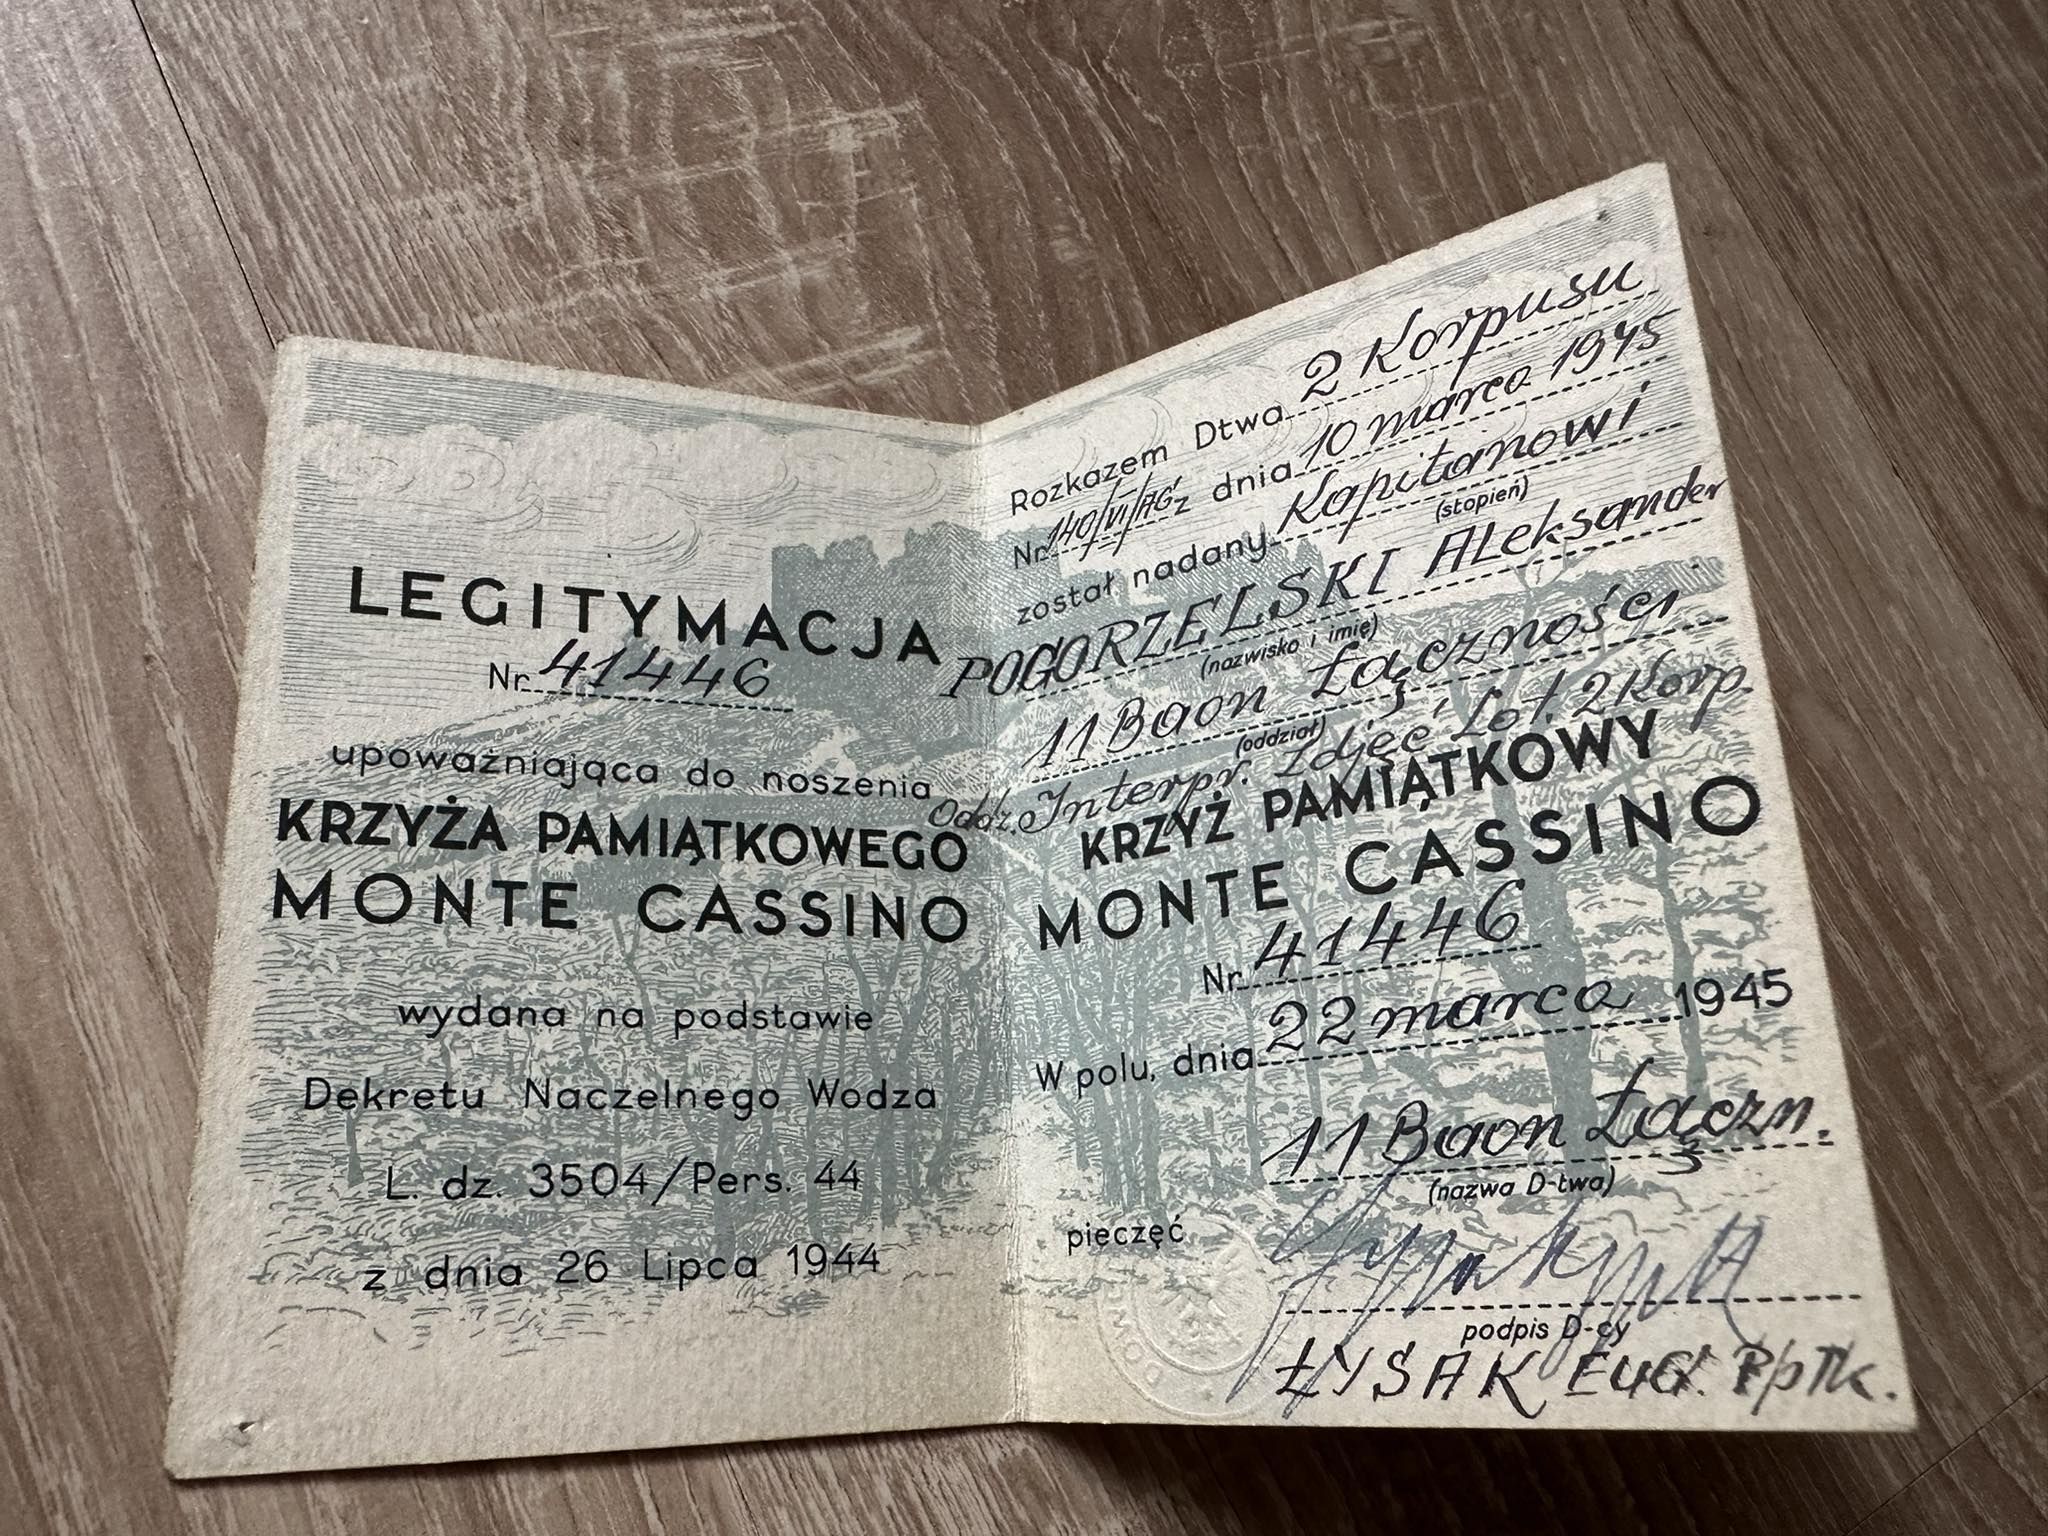 LEGITYMACJA
Nr. 41446
upoważniająca do noszenia
KRZYŻA PAMIĄTKOWEGO
MONTE CASSINO
wydana na podstawie
Dekretu Naczelnego Wodza
L. dz. 3504/Pers. 44
z dnia 26 Lipca 1944
Rozkazem Dtwa 2 Korpusu
Nr 140/VI/AG z dnia 10 marca 1945
został nadany Kapitanowi
(stopień)
POGORZELSKI Aleksander
(nazwisko i imię)
11 Baon Łączności
(oddział)
Oddz. Interpr. Zdjęć Lot. 2 Korp.
KRZYŻ PAMIĄTKOWY
MONTE CASSINO
Nr. 41446
W polu, dnia 22 marca 1945
11 Baon Łączn.
(nazwa D-twa)
pieczęć
podpis D-cy
ŁYSAK Eug. Ppłk.